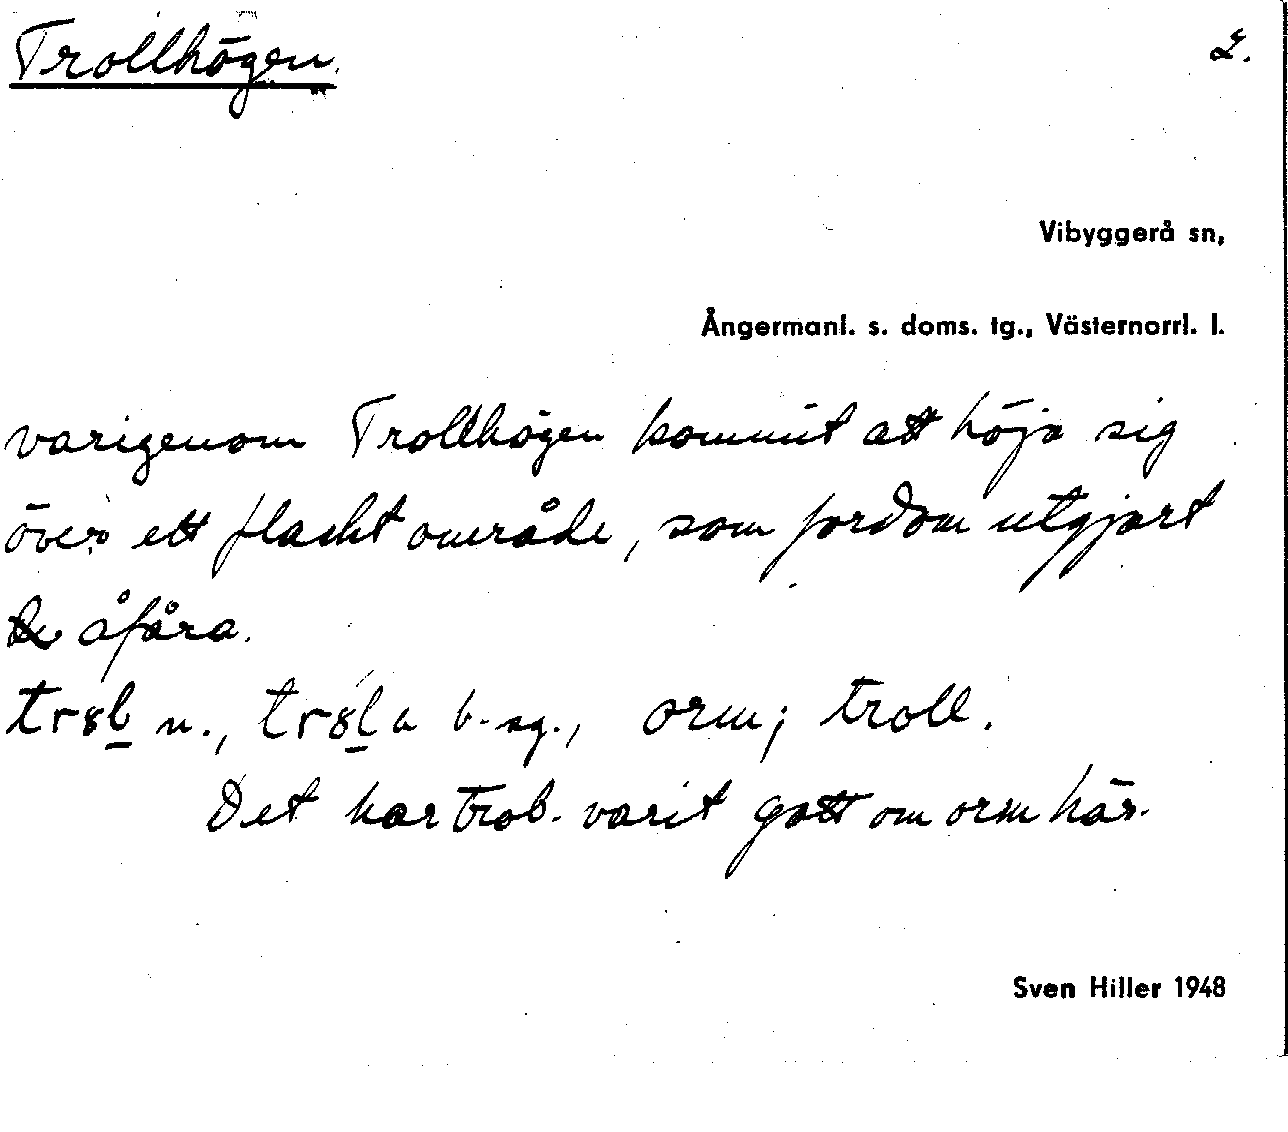 Trollhögen. 2.
Vibyggerå sn,
Ångermanl. s. doms. tg., Västernorrl. l.
varigenom Trollhögen kommit att höja sig
över ett flackt område, som fordom utgjort
åfåra.
n., b. sg., orm; troll.
Det har trol. varit gott om orm här.
Sven Hiller 1948